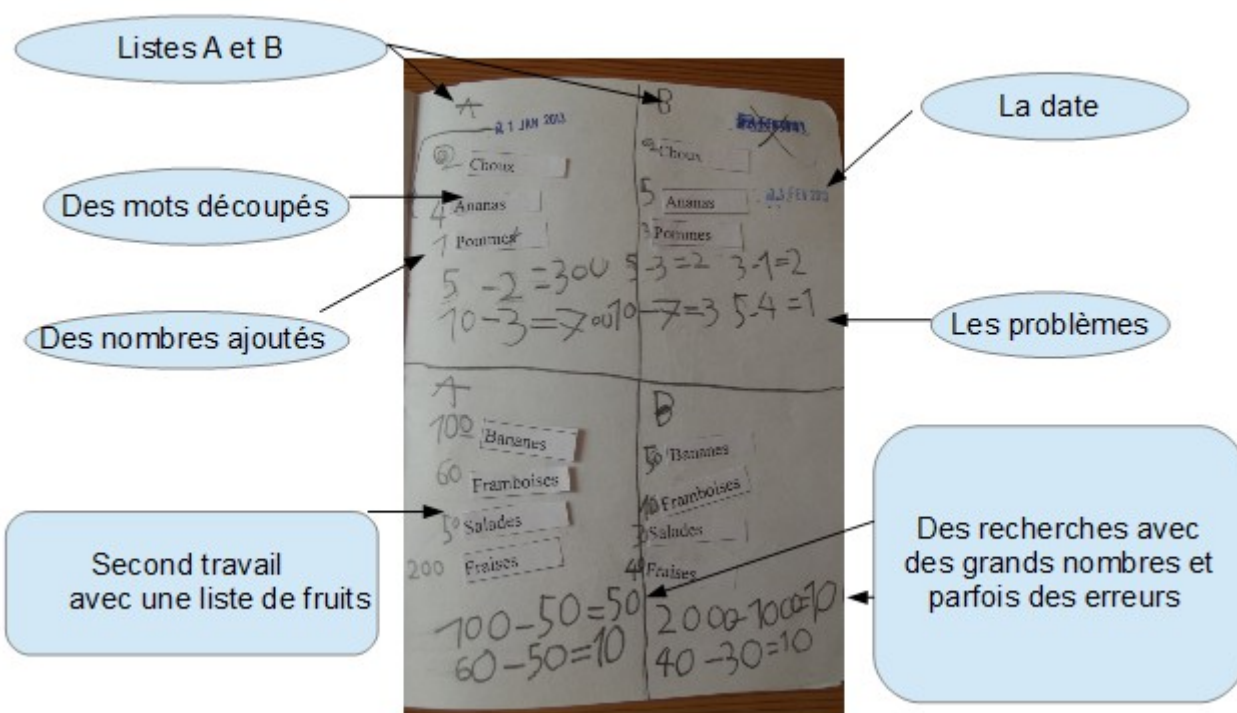 Listes A et B
La date
Des mots découpés
Des nombres ajoutés
Les problèmes
Second travail
avec une liste de fruits
Des recherches avec
des grands nombres et
parfois des erreurs
A
21 JAN 2013
Choux
4 Ananas
1 Pommes
5 - 2 = 300
10 - 3 = 700
B
Choux
5 Ananas
FEV 2013
3 Pommes
5 - 3 = 2 3 - 1 = 2
10 - 7 = 3 5 - 4 = 1
A
100 Bananes
60 Framboises
50 Salades
200 Fraises
100 - 50 = 50
60 - 50 = 10
B
50 Bananes
10 Framboises
Salades
Fraises
40 - 30 = 10